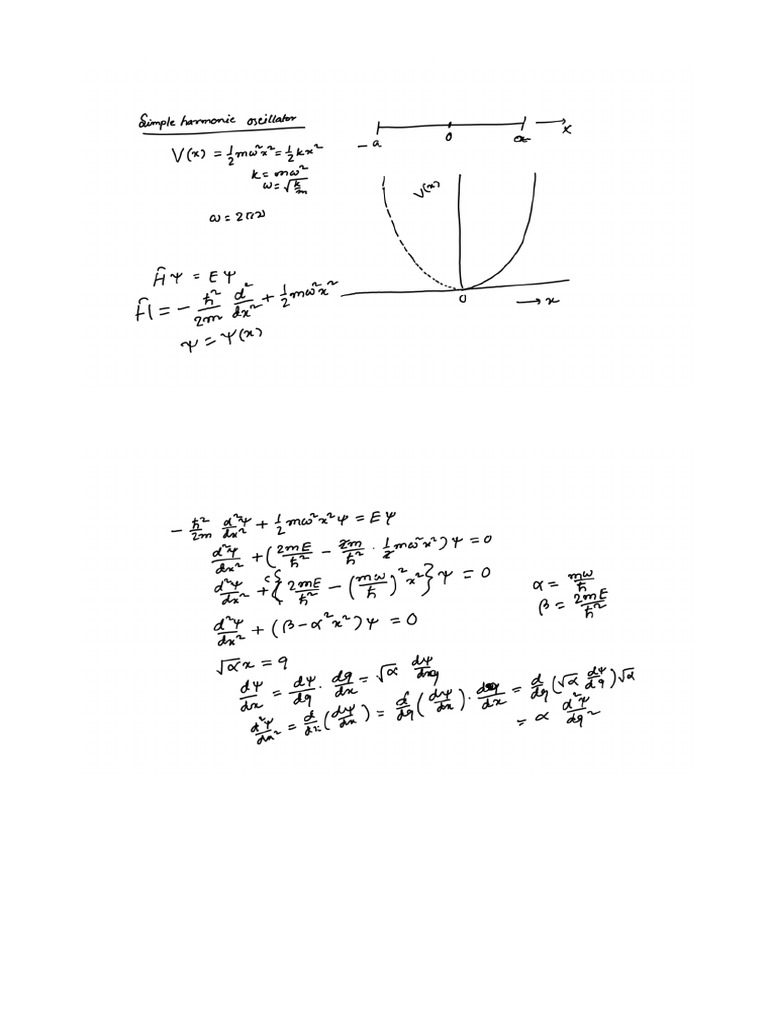 Simple harmonic oscillator
V(x) = 1/2 mω²x² = 1/2 kx²
k = mω²
ω = √(k/m)
ω = 2πν
-a 0 a x
V(x)
0 → x
Ĥψ = Eψ
Ĥ = - ħ²/2m d²/dx² + 1/2 mω²x²
ψ = ψ(x)
- ħ²/2m d²ψ/dx² + 1/2 mω²x²ψ = Eψ
d²ψ/dx² + (2mE/ħ² - 2m/ħ² · 1/2 mω²x²)ψ = 0
d²ψ/dx² + {2mE/ħ² - (mω/ħ)² x²}ψ = 0
α = mω/ħ
β = 2mE/ħ²
d²ψ/dx² + (β - α²x²)ψ = 0
√α x = q
dψ/dx = dψ/dq · dq/dx = √α dψ/dq
d²ψ/dx² = d/dx (dψ/dx) = d/dq (dψ/dx) · dq/dx = d/dq (√α dψ/dq) √α
= α d²ψ/dq²